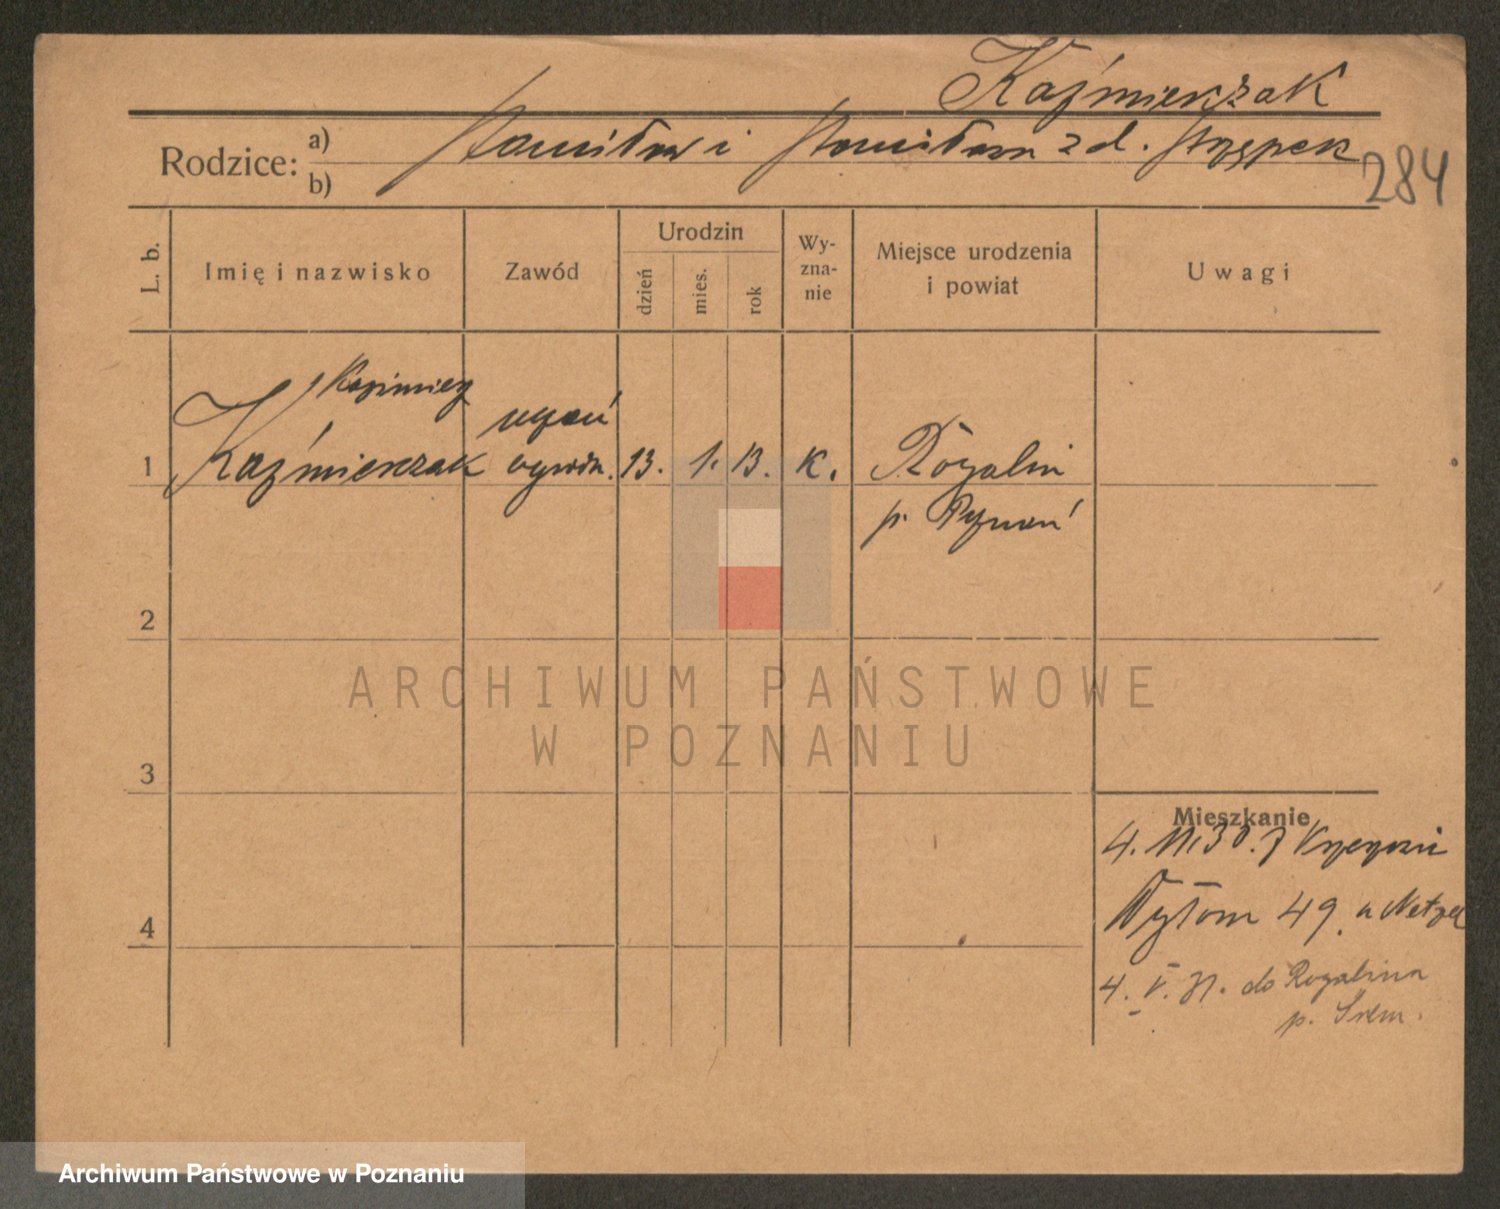 Kaźmierczak
Rodzice:
a) Stanisław i Stanisława z d.
b)
284
L. b.
Imię i nazwisko
Zawód
Urodzin
dzień
mies.
rok
Wy-
zna-
nie
Miejsce urodzenia
i powiat
Uwagi
Kazimierz
uczeń
1 Kaźmierczak ogrodn. 13. 1. 13. K. Rogalin
p.
2
3
4
ARCHIWUM PAŃSTWOWE
W POZNANIU
Mieszkanie
4. 11. 30. z
Wyłom 49
4. V. 31. do Rogalina
p. Śrem.
Archiwum Państwowe w Poznaniu